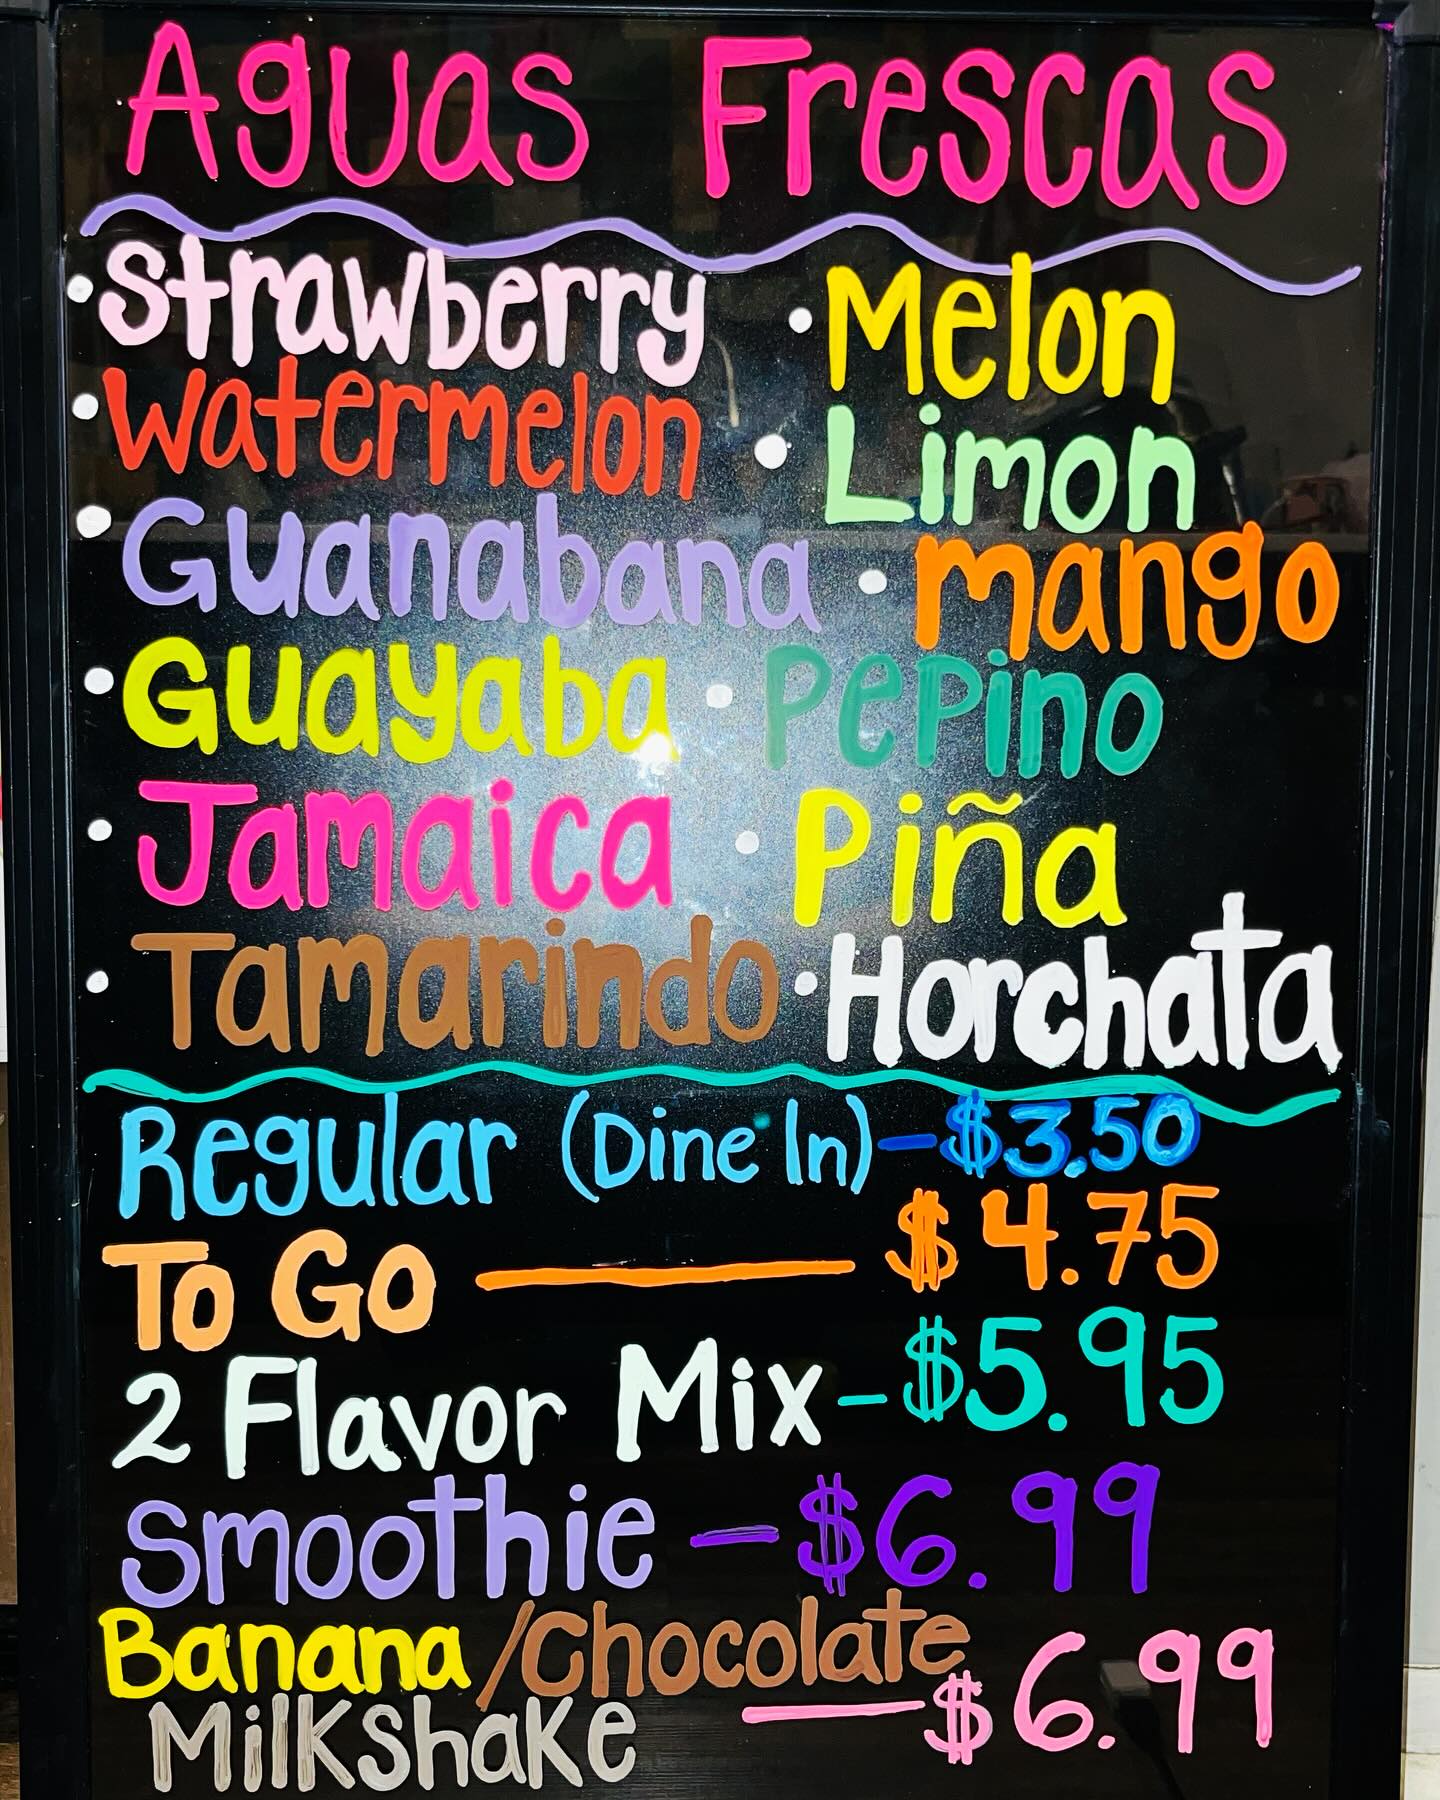 Aguas Frescas
• Strawberry • Melon
• Watermelon • Limon
• Guanabana • mango
• Guayaba • Pepino
• Jamaica • Piña
• Tamarindo • Horchata
Regular (Dine In) - $3.50
To Go — $4.75
2 Flavor Mix - $5.95
Smoothie - $6.99
Banana/Chocolate
Milkshake — $6.99